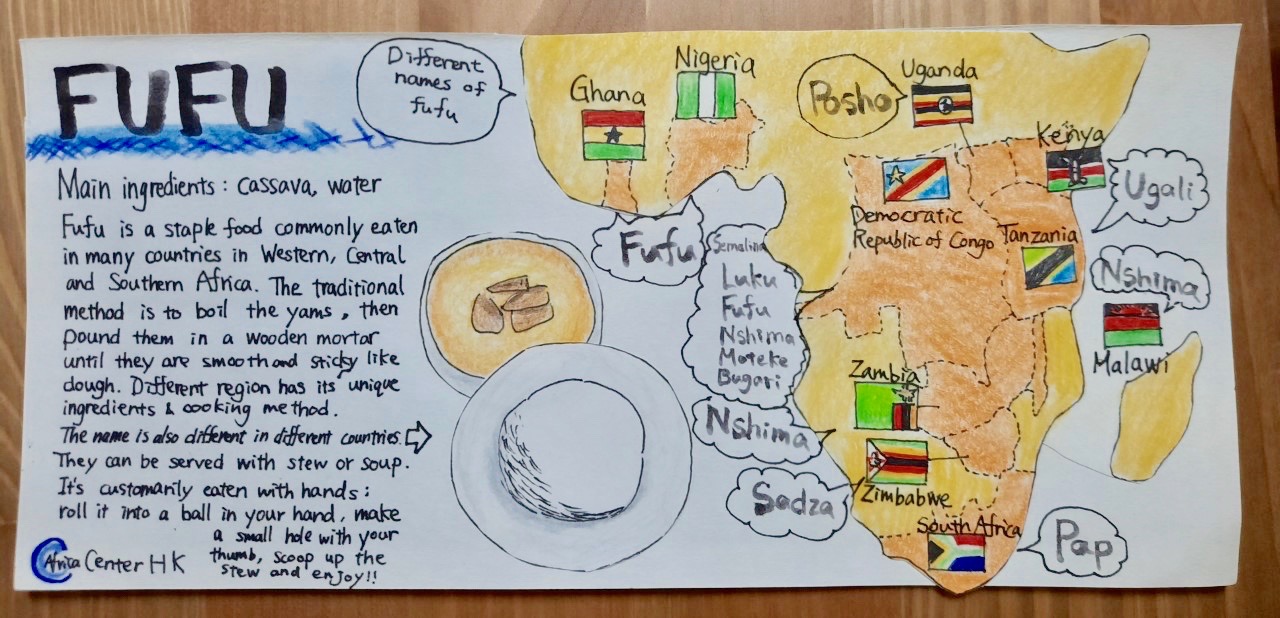 FUFU
Main ingredients : cassava, water
Fufu is a staple food commonly eaten
in many countries in Western, Central
and Southern Africa. The traditional
method is to boil the yams, then
pound them in a wooden mortar
until they are smooth and sticky like
dough. Different region has its unique
ingredients & cooking method.
The name is also different in different countries.
They can be served with stew or soup.
It's customarily eaten with hands:
roll it into a ball in your hand, make
a small hole with your
thumb, scoop up the
stew and enjoy!!
Africa Center HK
Different
names of
fufu
Ghana
Nigeria
Fufu
Posho
Uganda
Kenya
Ugali
Democratic
Republic of Congo
Tanzania
Semalina
Luku
Fufu
Nshima
Moteke
Bugari
Nshima
Malawi
Zambia
Nshima
Zimbabwe
Sadza
South Africa
Pap